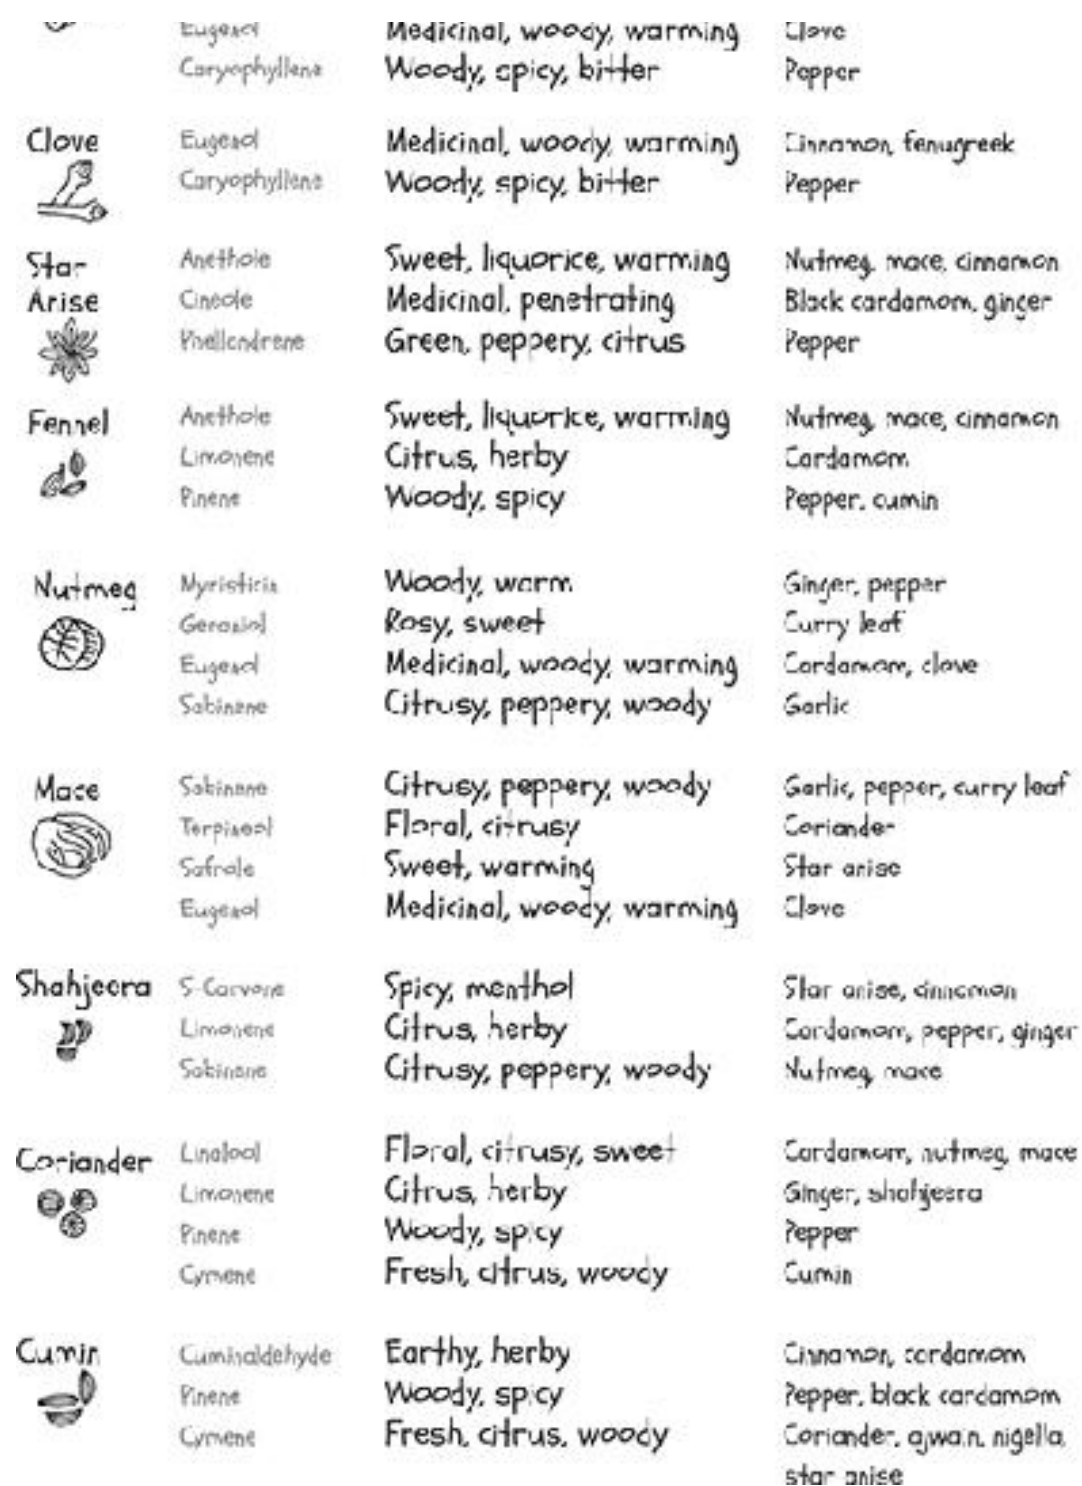 Eugenol Medicinal, woody, warming Clove
Caryophyllene Woody, spicy, bitter Pepper
Clove Eugenol Medicinal, woody, warming Cinnamon, fenugreek
Caryophyllene Woody, spicy, bitter Pepper
Star Anethole Sweet, liquorice, warming Nutmeg, mace, cinnamon
Anise Cineole Medicinal, penetrating Black cardamom, ginger
Phellandrene Green, peppery, citrus Pepper
Fennel Anethole Sweet, liquorice, warming Nutmeg, mace, cinnamon
Limonene Citrus, herby Cardamom
Pinene Woody, spicy Pepper, cumin
Nutmeg Myristicin Woody, warm Ginger, pepper
Geraniol Rosy, sweet Curry leaf
Eugenol Medicinal, woody, warming Cardamom, clove
Sabinene Citrusy, peppery, woody Garlic
Mace Sabinene Citrusy, peppery, woody Garlic, pepper, curry leaf
Terpineol Floral, citrusy Coriander
Safrole Sweet, warming Star anise
Eugenol Medicinal, woody, warming Clove
Shahjeera S-Carvone Spicy, menthol Star anise, cinnamon
Limonene Citrus, herby Cardamom, pepper, ginger
Sabinene Citrusy, peppery, woody Nutmeg, mace
Coriander Linalool Floral, citrusy, sweet Cardamom, nutmeg, mace
Limonene Citrus, herby Ginger, shahjeera
Pinene Woody, spicy Pepper
Cymene Fresh, citrus, woody Cumin
Cumin Cuminaldehyde Earthy, herby Cinnamon, cardamom
Pinene Woody, spicy Pepper, black cardamom
Cymene Fresh, citrus, woody Coriander, ajwain, nigella,
star anise